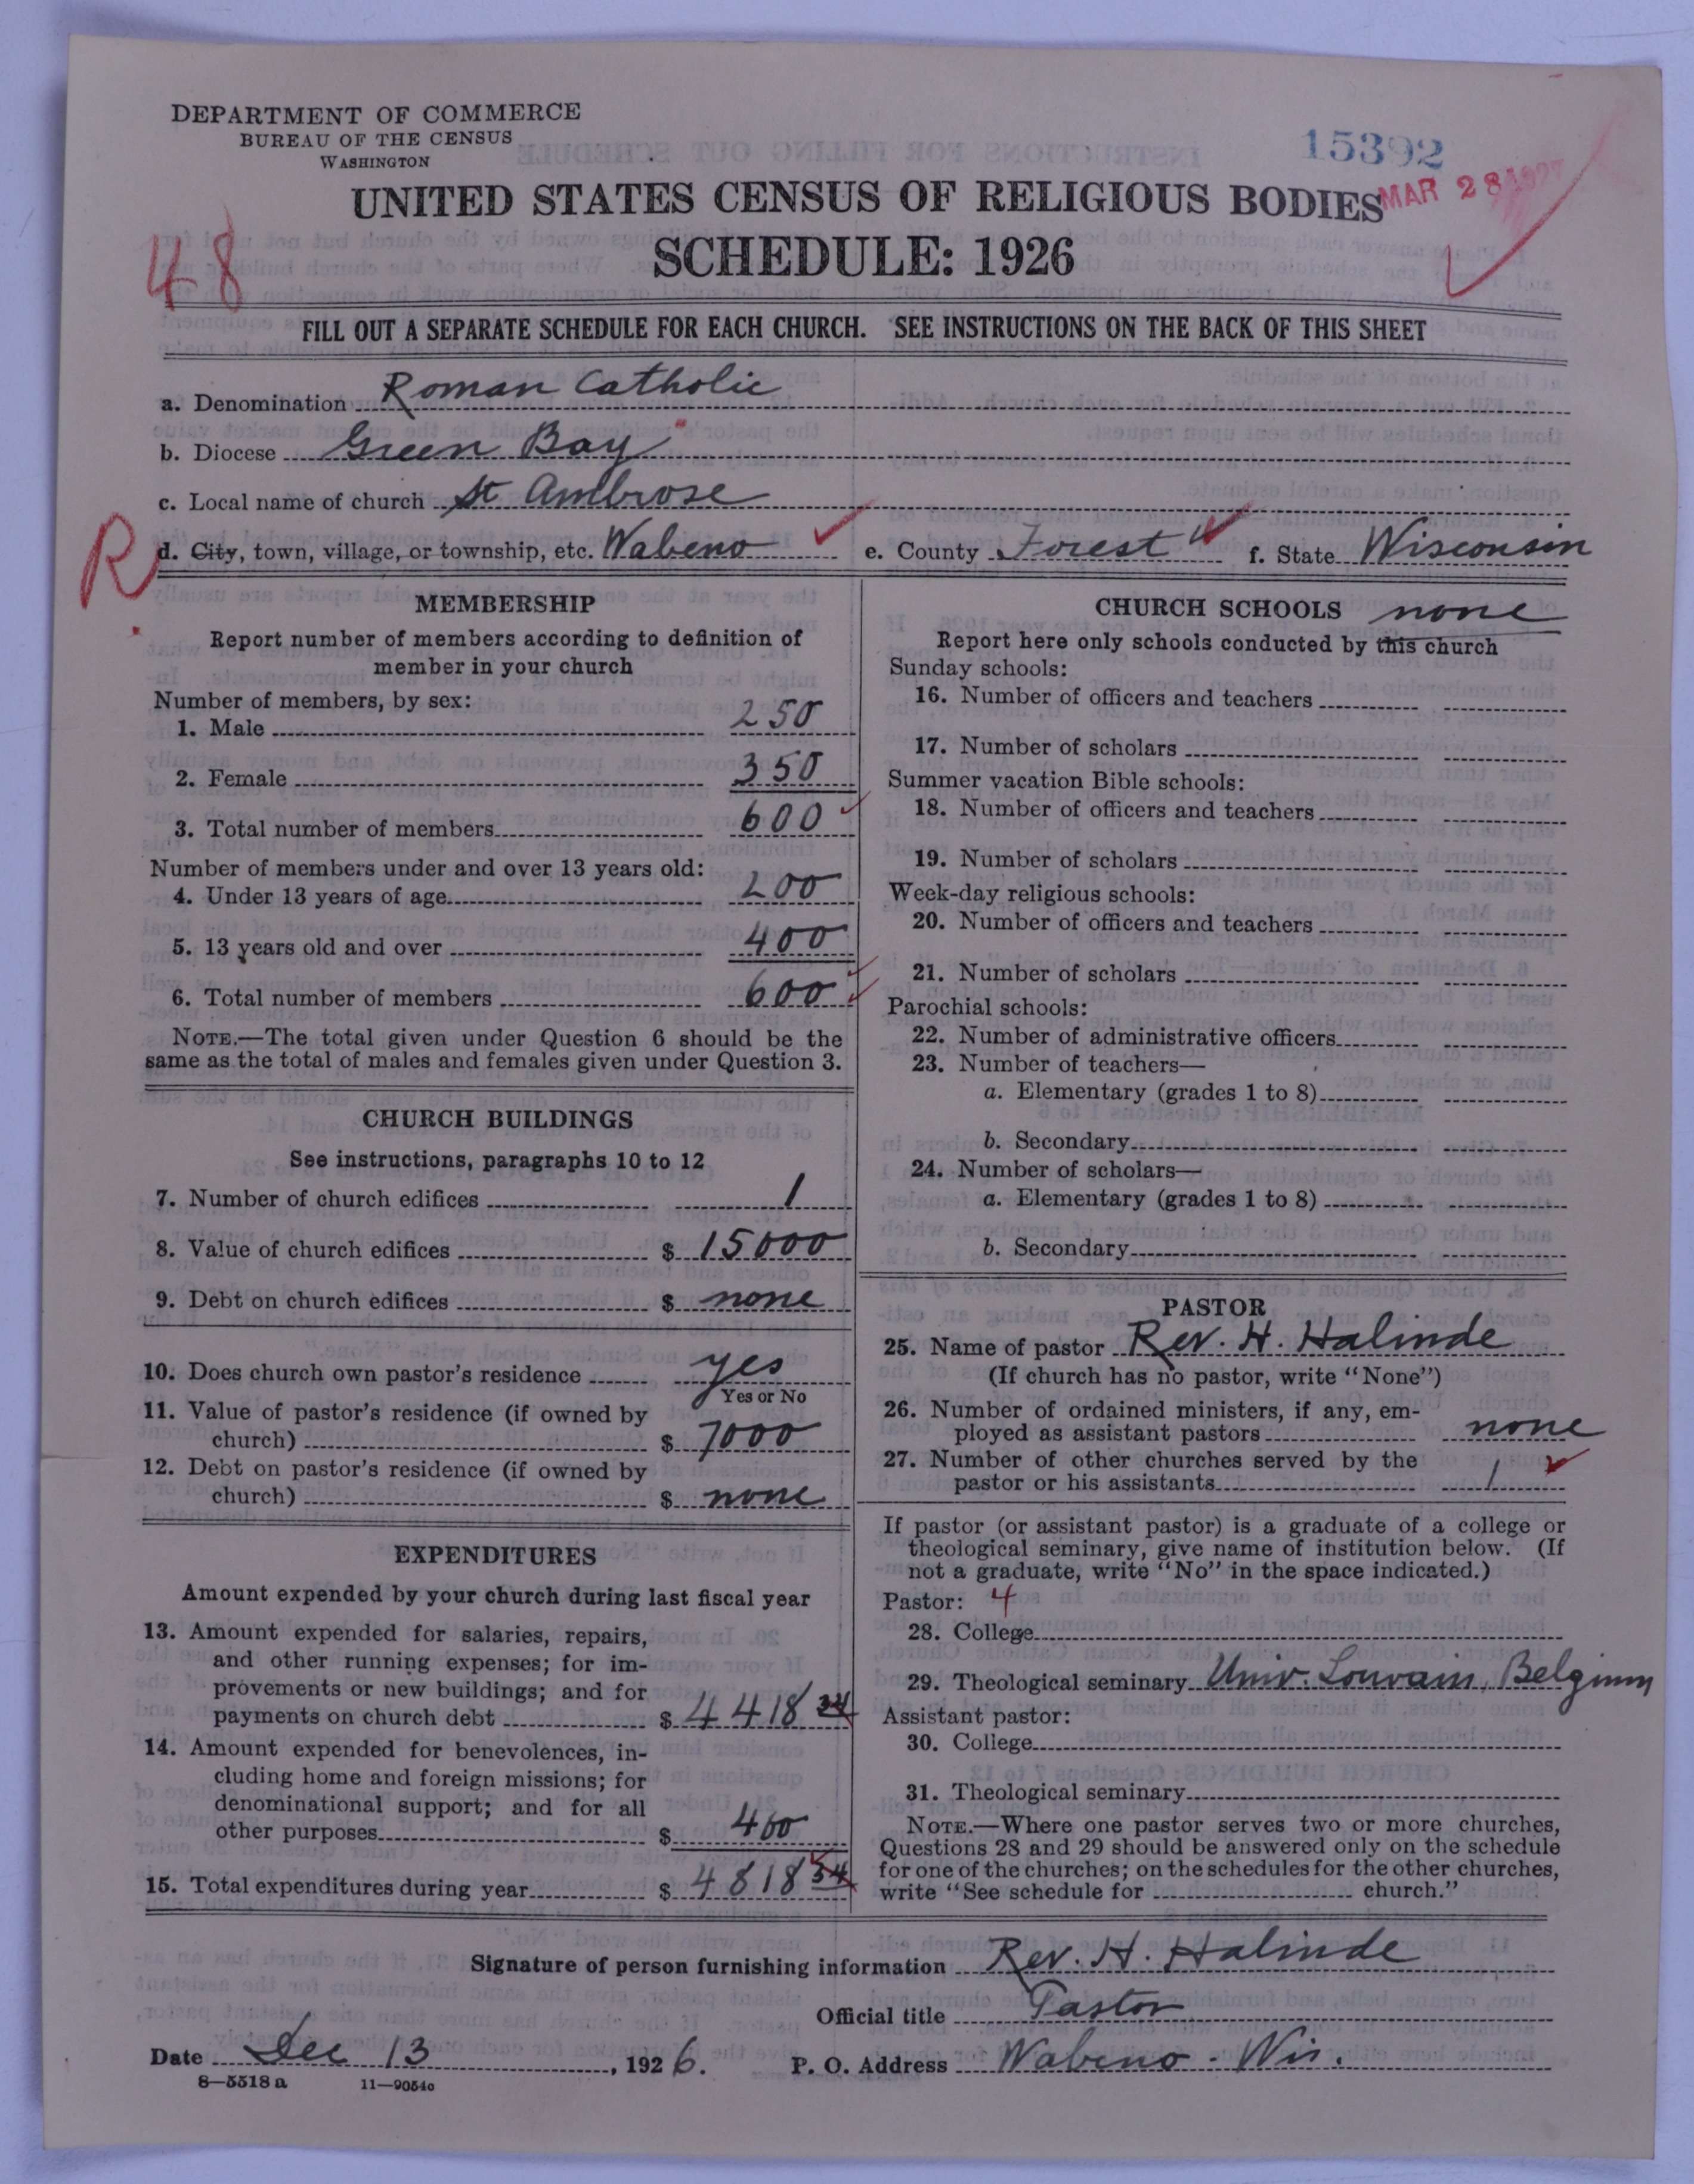 DEPARTMENT OF COMMERCE
BUREAU OF THE CENSUS
WASHINGTON
15392
MAR 28 1927
UNITED STATES CENSUS OF RELIGIOUS BODIES
SCHEDULE: 1926
48
FILL OUT A SEPARATE SCHEDULE FOR EACH CHURCH. SEE INSTRUCTIONS ON THE BACK OF THIS SHEET
a. Denomination Roman Catholic
b. Diocese Green Bay
c. Local name of church St Ambrose
R
d. City, town, village, or township, etc. Wabeno e. County Forest f. State Wisconsin
MEMBERSHIP
Report number of members according to definition of
member in your church
Number of members, by sex:
1. Male 250
2. Female 350
3. Total number of members 600
Number of members under and over 13 years old:
4. Under 13 years of age 200
5. 13 years old and over 400
6. Total number of members 600
NOTE.—The total given under Question 6 should be the
same as the total of males and females given under Question 3.
CHURCH BUILDINGS
See instructions, paragraphs 10 to 12
7. Number of church edifices 1
8. Value of church edifices $ 15000
9. Debt on church edifices $ none
10. Does church own pastor's residence yes
Yes or No
11. Value of pastor's residence (if owned by
church) $ 7000
12. Debt on pastor's residence (if owned by
church) $ none
EXPENDITURES
Amount expended by your church during last fiscal year
13. Amount expended for salaries, repairs,
and other running expenses; for im-
provements or new buildings; and for
payments on church debt $ 4418
14. Amount expended for benevolences, in-
cluding home and foreign missions; for
denominational support; and for all
other purposes $ 400
15. Total expenditures during year $ 4818
CHURCH SCHOOLS none
Report here only schools conducted by this church
Sunday schools:
16. Number of officers and teachers
17. Number of scholars
Summer vacation Bible schools:
18. Number of officers and teachers
19. Number of scholars
Week-day religious schools:
20. Number of officers and teachers
21. Number of scholars
Parochial schools:
22. Number of administrative officers
23. Number of teachers—
a. Elementary (grades 1 to 8)
b. Secondary
24. Number of scholars—
a. Elementary (grades 1 to 8)
b. Secondary
PASTOR
25. Name of pastor Rev. H. Halinde
(If church has no pastor, write "None")
26. Number of ordained ministers, if any, em-
ployed as assistant pastors none
27. Number of other churches served by the
pastor or his assistants 1
If pastor (or assistant pastor) is a graduate of a college or
theological seminary, give name of institution below. (If
not a graduate, write "No" in the space indicated.)
Pastor: 4
28. College
29. Theological seminary Univ. Louvain, Belgium
Assistant pastor:
30. College
31. Theological seminary
NOTE.—Where one pastor serves two or more churches,
Questions 28 and 29 should be answered only on the schedule
for one of the churches; on the schedules for the other churches,
write "See schedule for church."
Signature of person furnishing information Rev. H. Halinde
Official title Pastor
Date Dec 13, 1926. P. O. Address Wabeno - Wis.
8—5518 a 11—9054c